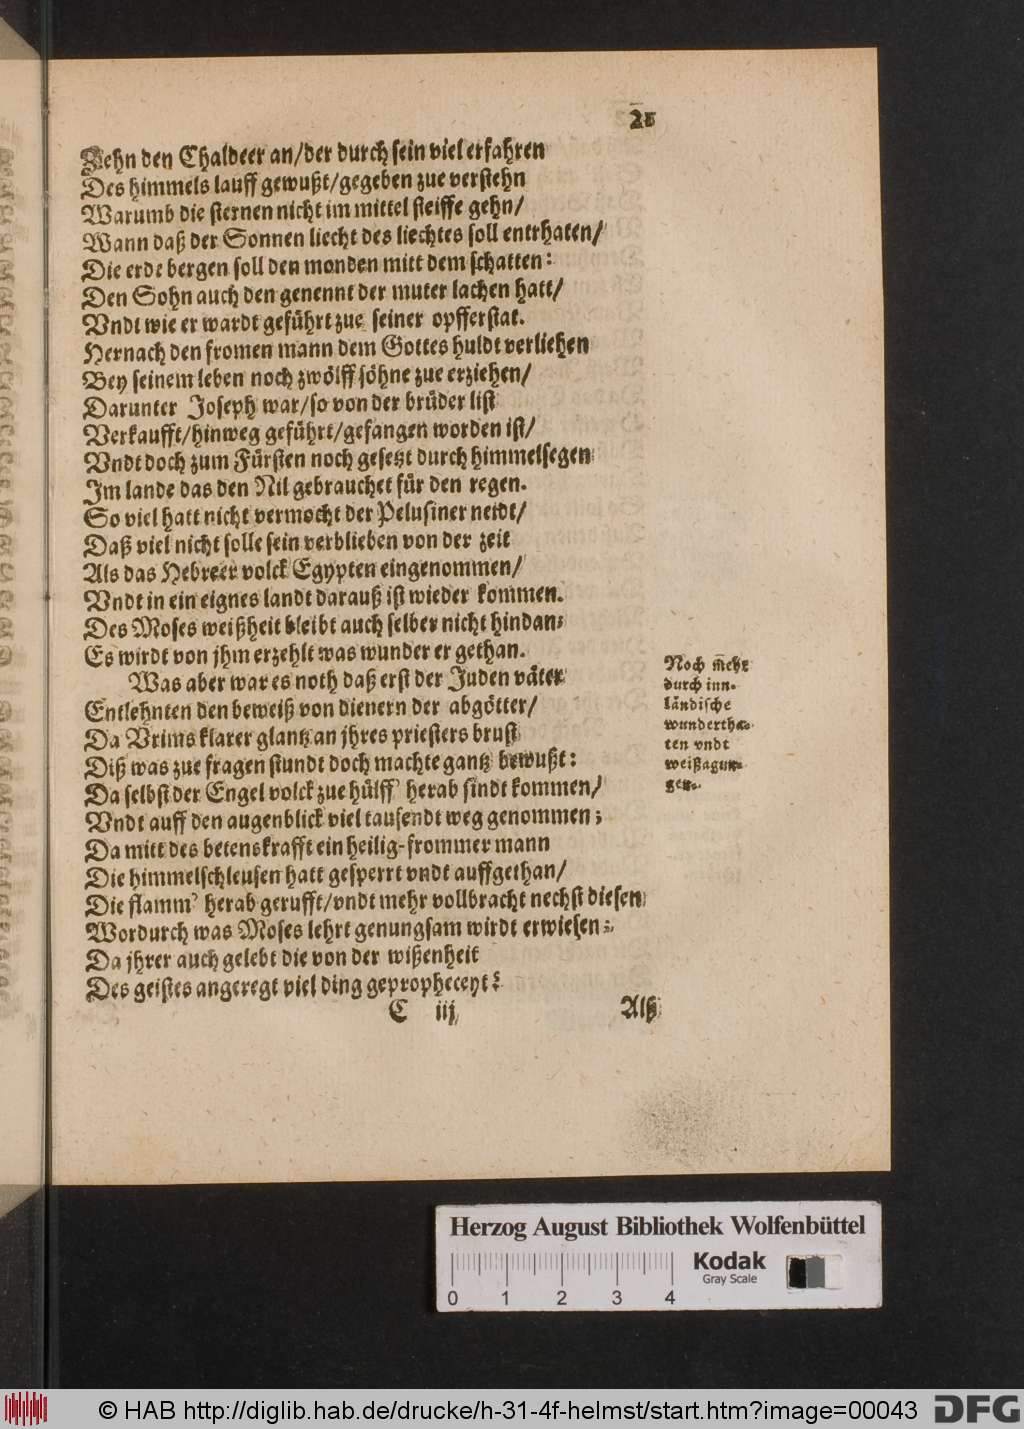 21
Zehn den Chaldeer an/der durch sein viel erfahren
Des himmels lauff gewußt/gegeben zue verstehn
Warumb die sternen nicht im mittel steiffe gehn/
Wann daß der Sonnen liecht des liechtes soll entrhaten/
Die erde bergen soll den monden mitt dem schatten:
Den Sohn auch den genennt der muter lachen hatt/
Vndt wie er wardt geführt zue seiner opfferstat.
Hernach den fromen mann dem Gottes huldt verliehen
Bey seinem leben noch zwölff söhne zue erziehen/
Darunter Joseph war/so von der brüder list
Verkaufft/hinweg geführt/gefangen worden ist/
Vndt doch zum Fürsten noch gesetzt durch himmelsegen
Im lande das den Nil gebrauchet für den regen.
So viel hatt nicht vermocht der Pelusiner neidt/
Daß viel nicht solle sein verblieben von der zeit
Als das Hebreer volck Egypten eingenommen/
Vndt in ein eignes landt darauß ist wieder kommen.
Des Moses weißheit bleibt auch selber nicht hindan;
Es wirdt von jhm erzehlt was wunder er gethan.
Was aber war es noth daß erst der Juden väter
Entlehnten den beweiß von dienern der abgötter/
Da Vrims klarer glantz an jhres priesters brust
Diß was zue fragen stundt doch machte gantz bewußt:
Da selbst der Engel volck zue hülff' herab sindt kommen/
Vndt auff den augenblick viel tausendt weg genommen;
Da mitt des betens krafft ein heilig-frommer mann
Die himmelschleusen hatt gesperrt vndt auffgethan/
Die flamm' herab gerufft/vndt mehr vollbracht nechst diesen
Wordurch was Moses lehrt genungsam wirdt erwiesen;
Da jhrer auch gelebt die von der wißenheit
Des geistes angeregt viel ding gepropheceyt?
Noch m̃ehr
durch inn-
ländische
wundertha-
ten vndt
weißagun-
gen.
C iij
Alß
Herzog August Bibliothek Wolfenbüttel
Kodak
Gray Scale
0 1 2 3 4
© HAB http://diglib.hab.de/drucke/h-31-4f-helmst/start.htm?image=00043
DFG